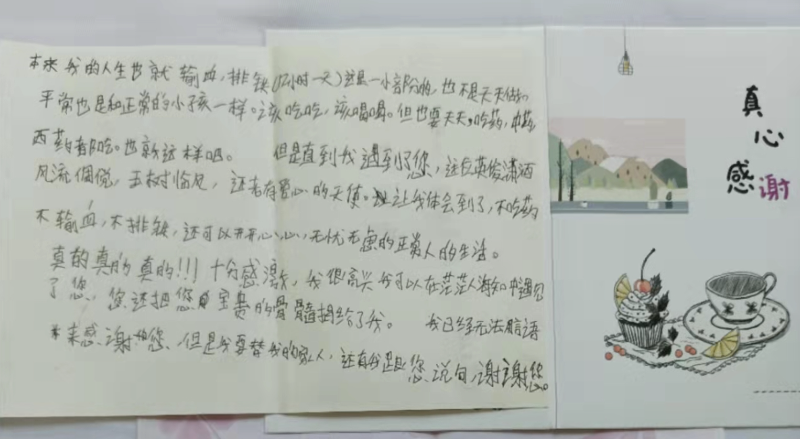 本来我的人生也就输血,排铁(12小时一天)这是一小部分的,也不是天天做的
平常也是和正常的小孩一样。该吃吃,该喝喝。但也要天天吃药,中药
西药都吃。也就这样吧。 但是直到我遇到了您,这位英俊潇洒
风流倜傥,玉树临风,还有爱心的天使。让我体会到了,不吃药
不输血,不排铁,还可以开开心心,无忧无虑的正常人的生活。
真的真的真的!!!十分感激,我很高兴我可以在茫茫人海中遇见
了您、您还把您宝贵的骨髓捐给了我。 我已经无法用语
来感谢您、但是我要替我的家人,还有我是您说句,谢谢您
真心
感谢